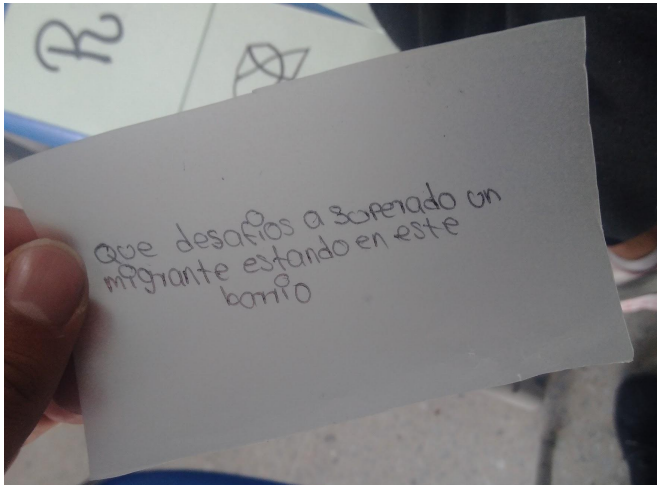 R
que desafios a superado un
migrante estando en este
barrio